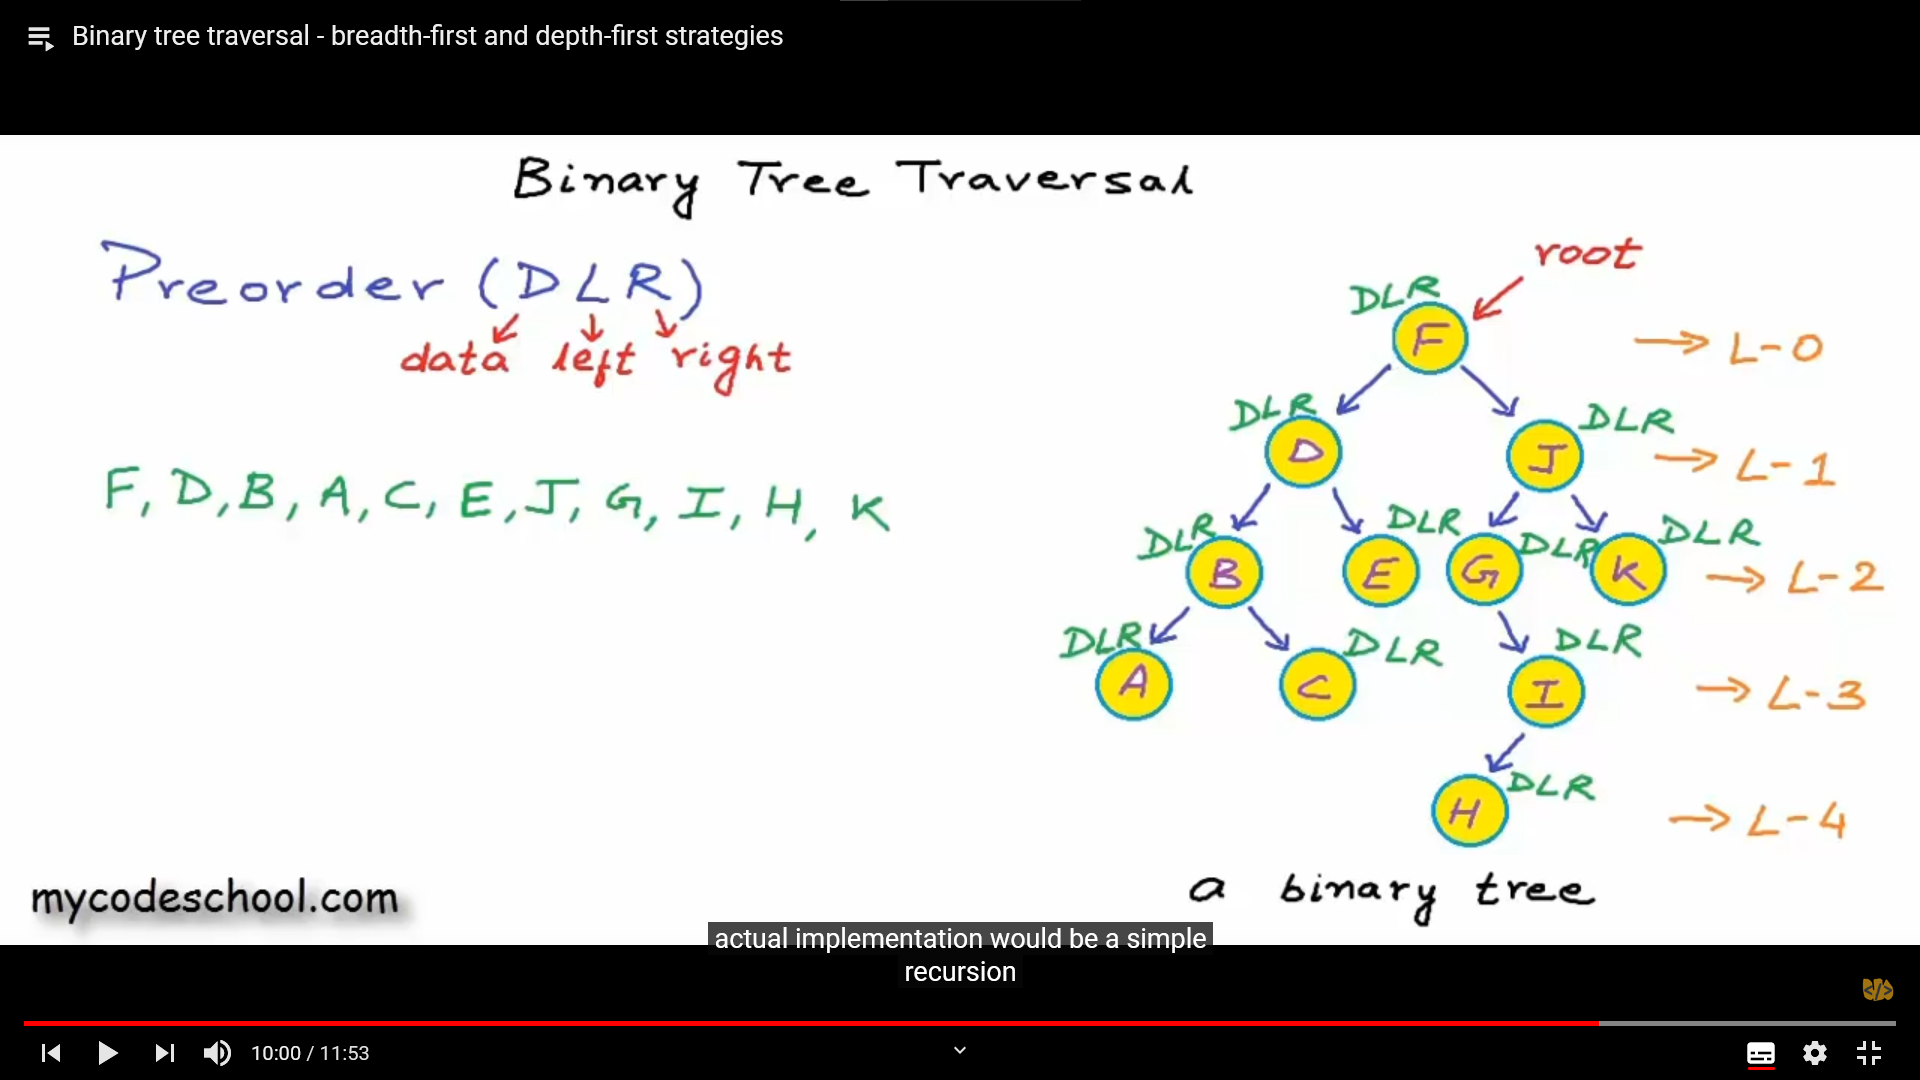 Binary tree traversal - breadth-first and depth-first strategies
Binary Tree Traversal
Preorder (DLR)
data left right
F, D, B, A, C, E, J, G, I, H, K
root
DLR
F
→ L-0
DLR
DLR
D
J
→ L-1
DLR
DLR
DLR
DLR
B
E
G
K
→ L-2
DLR
DLR
DLR
A
C
I
→ L-3
DLR
H
→ L-4
a binary tree
mycodeschool.com
actual implementation would be a simple
recursion
</>
10:00 / 11:53